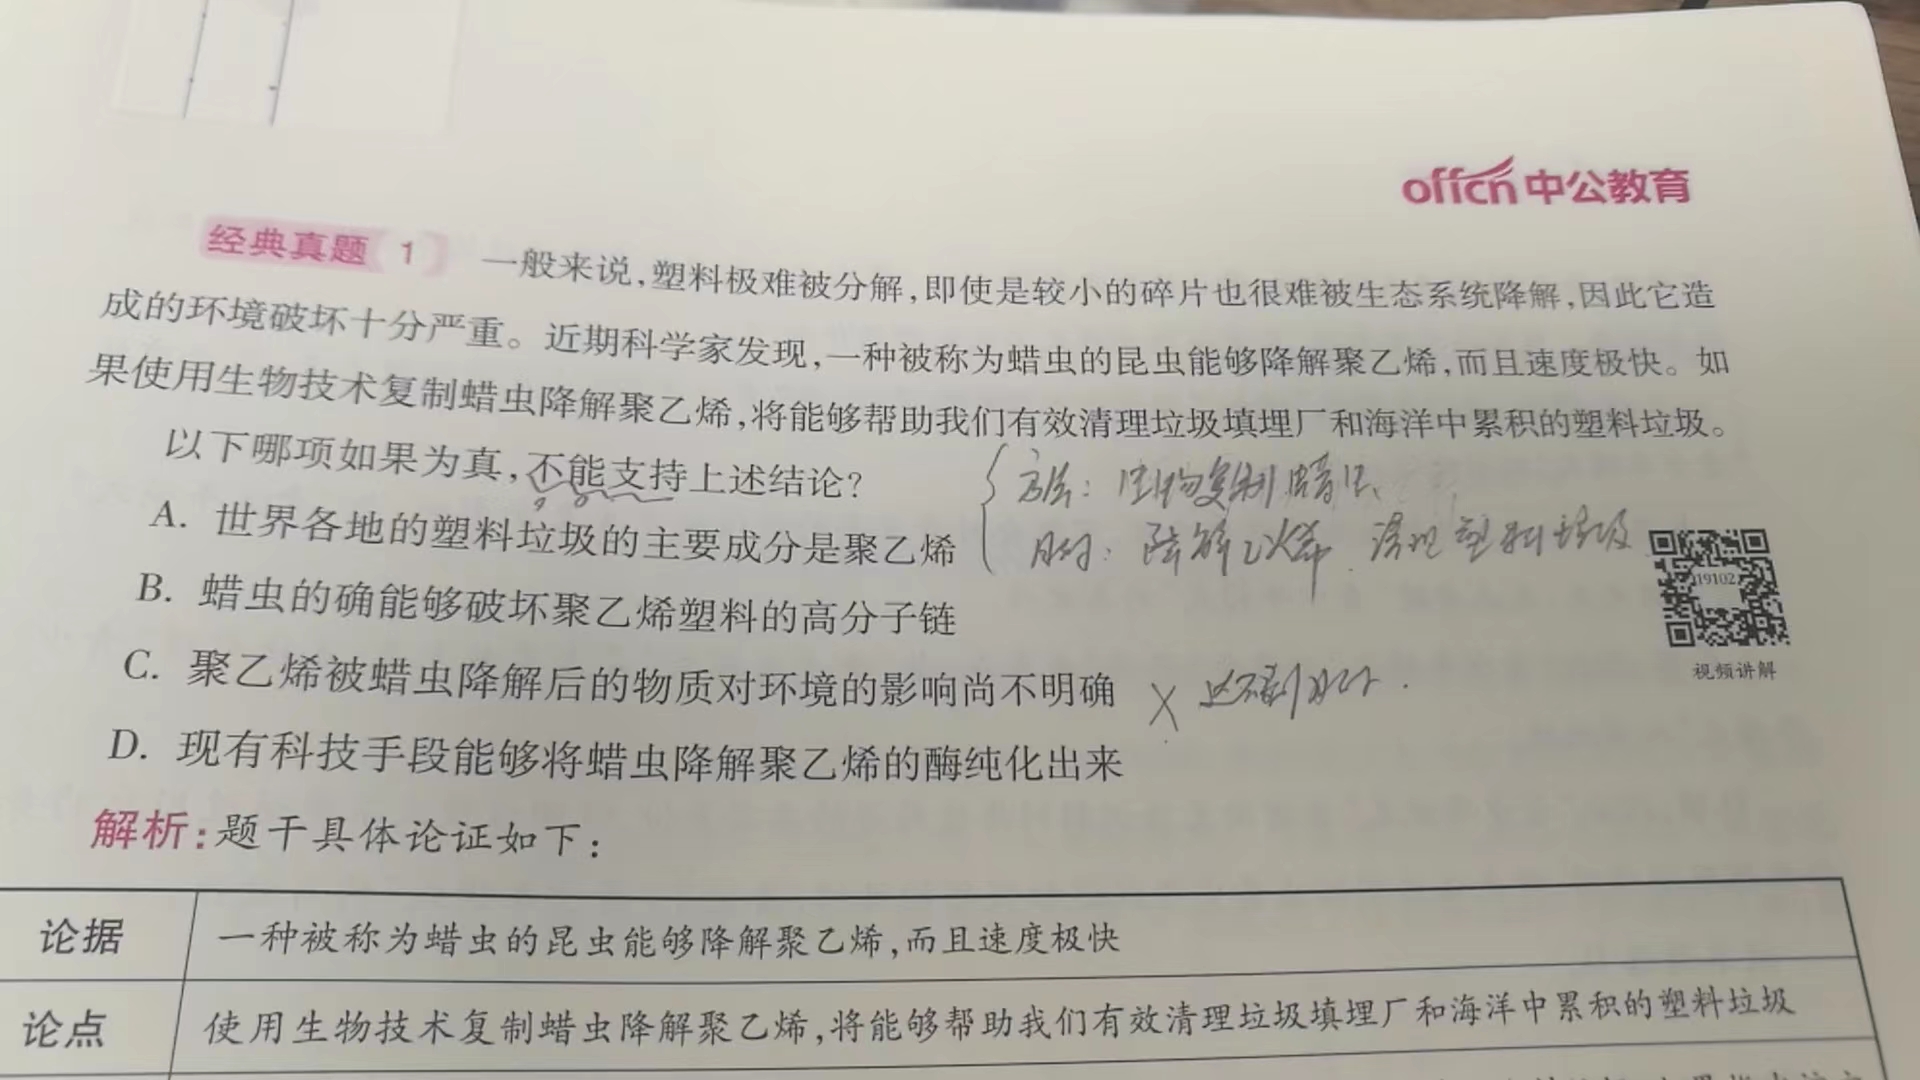 offcn中公教育
经典真题 1 一般来说,塑料极难被分解,即使是较小的碎片也很难被生态系统降解,因此它造
成的环境破坏十分严重。近期科学家发现,一种被称为蜡虫的昆虫能够降解聚乙烯,而且速度极快。如
果使用生物技术复制蜡虫降解聚乙烯,将能够帮助我们有效清理垃圾填埋厂和海洋中累积的塑料垃圾。
以下哪项如果为真,不能支持上述结论?
方法:生物复制蜡虫
目的:降解乙烯 清理塑料垃圾
A. 世界各地的塑料垃圾的主要成分是聚乙烯
B. 蜡虫的确能够破坏聚乙烯塑料的高分子链
19102
视频讲解
C. 聚乙烯被蜡虫降解后的物质对环境的影响尚不明确
D. 现有科技手段能够将蜡虫降解聚乙烯的酶纯化出来
解析:题干具体论证如下:
论据 一种被称为蜡虫的昆虫能够降解聚乙烯,而且速度极快
论点 使用生物技术复制蜡虫降解聚乙烯,将能够帮助我们有效清理垃圾填埋厂和海洋中累积的塑料垃圾